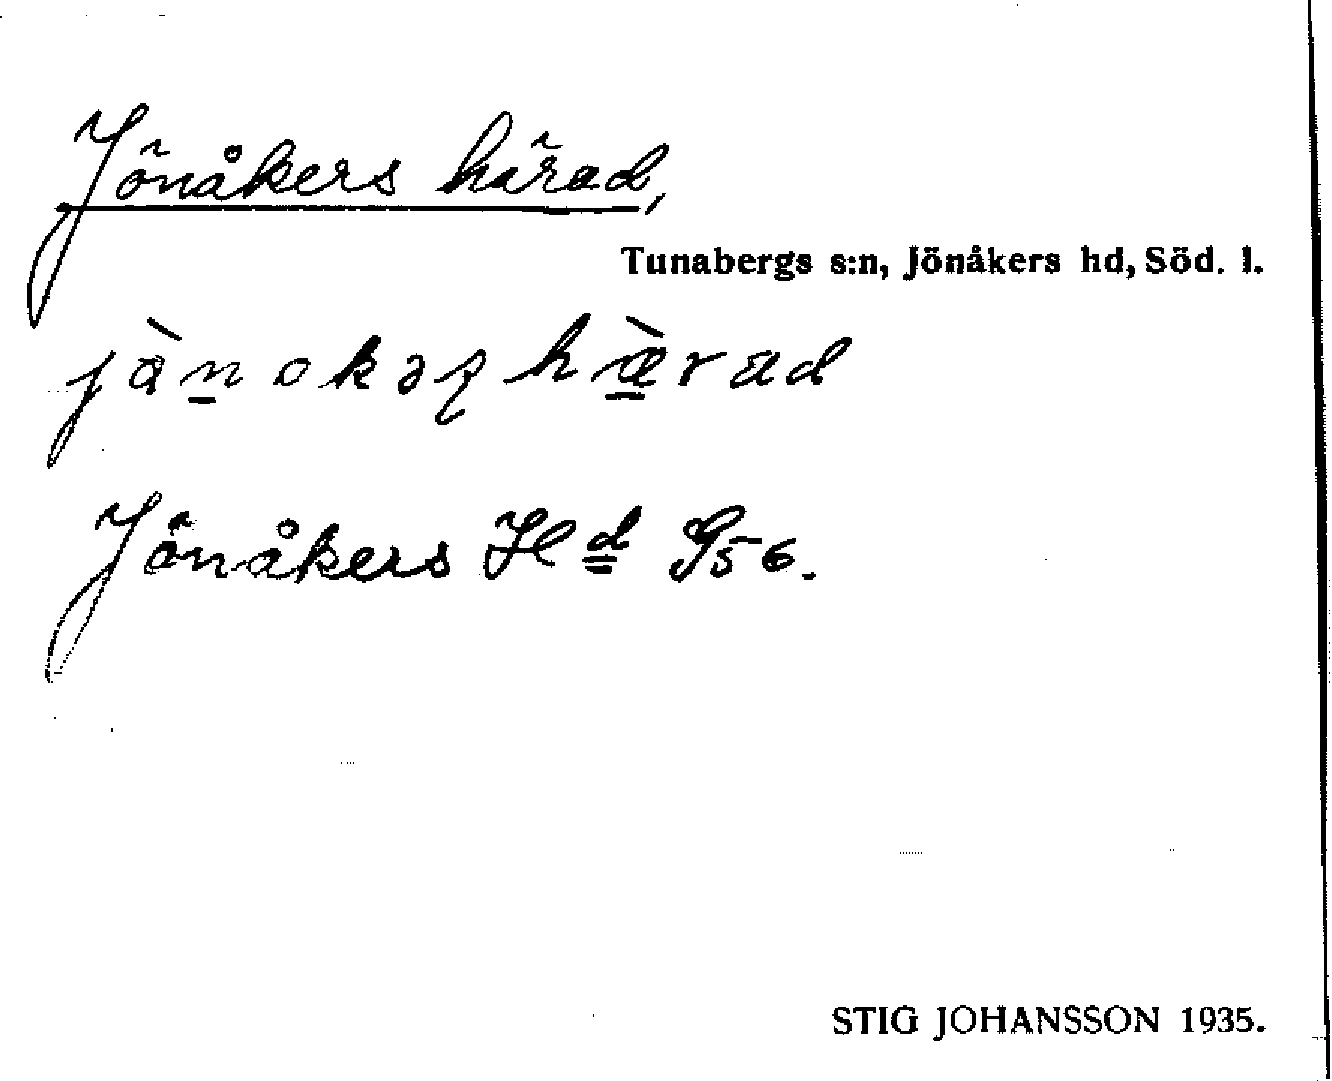 Jönåkers härad,
Tunabergs s:n, Jönåkers hd, Söd. l.
jànokəʂ hæ̀rad
Jönåkers Hd G56.
STIG JOHANSSON 1935.